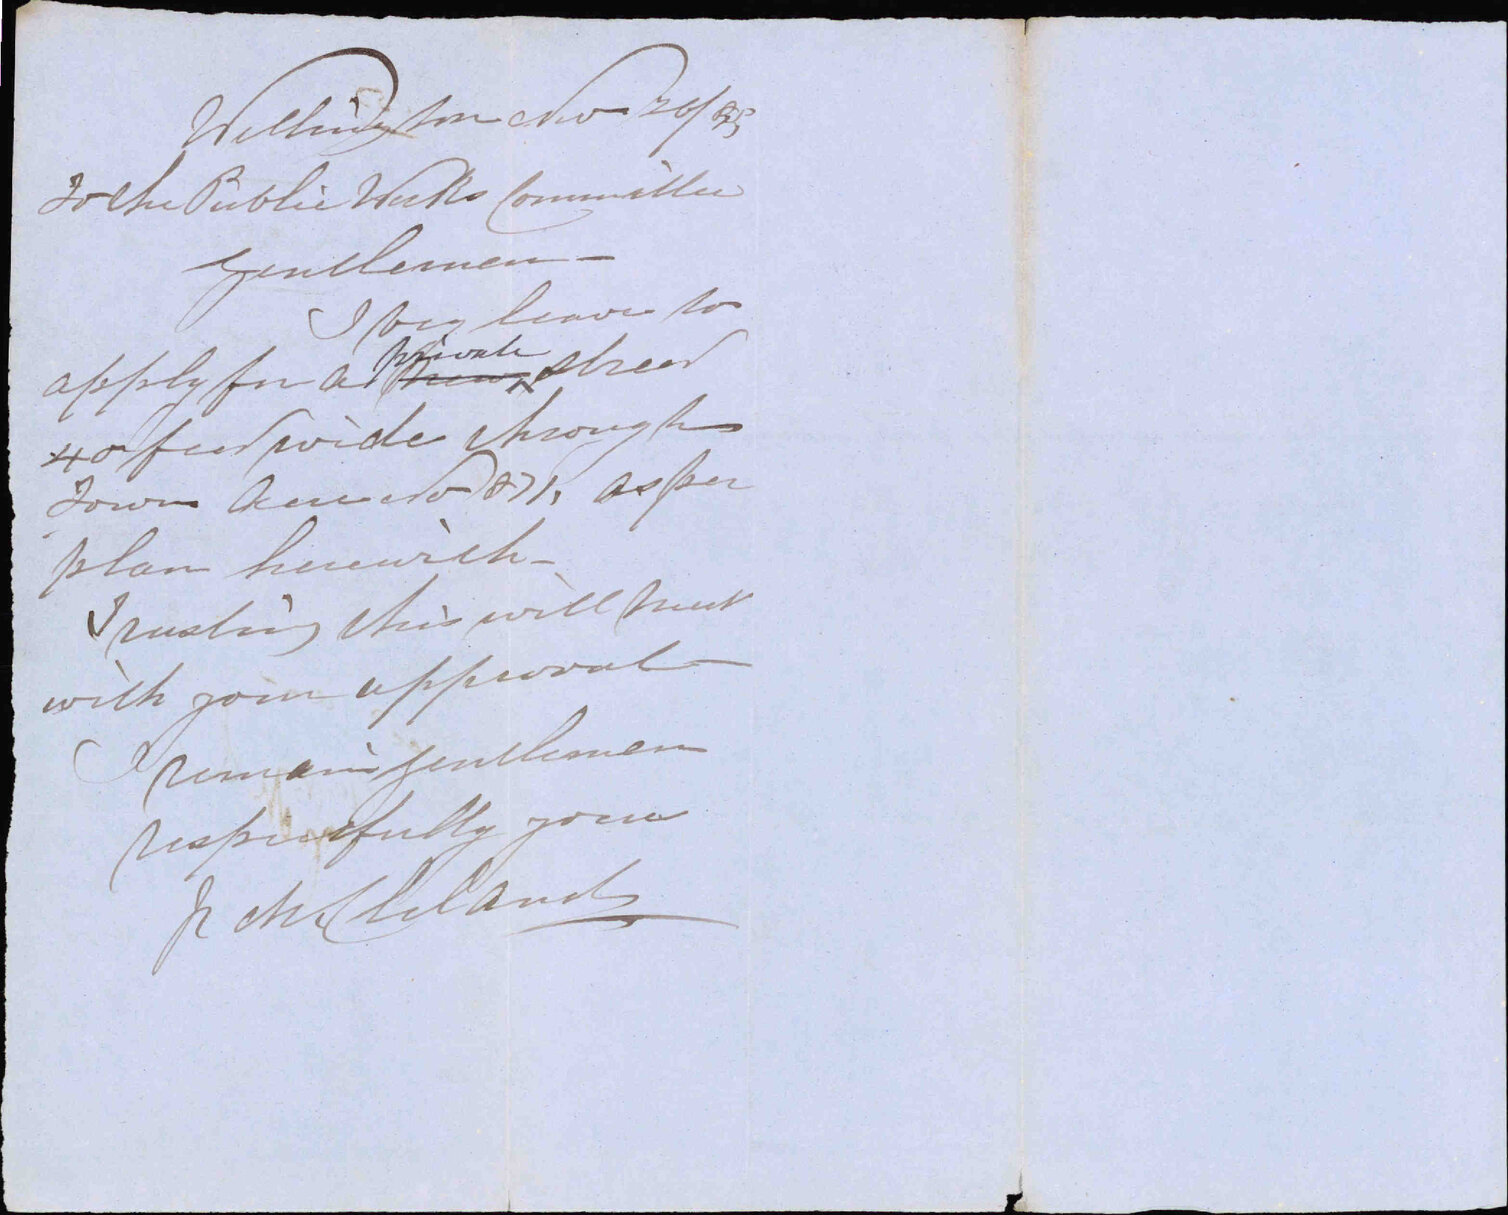 Wellington Nov 26/85
To the Public Works Committee
Gentlemen –
I beg leave to
private
apply for a new street
40 feet wide through
Town Acre No 871, as per
plan herewith –
Trusting this will meet
with your approval –
I remain gentlemen
respectfully yours
McClelland